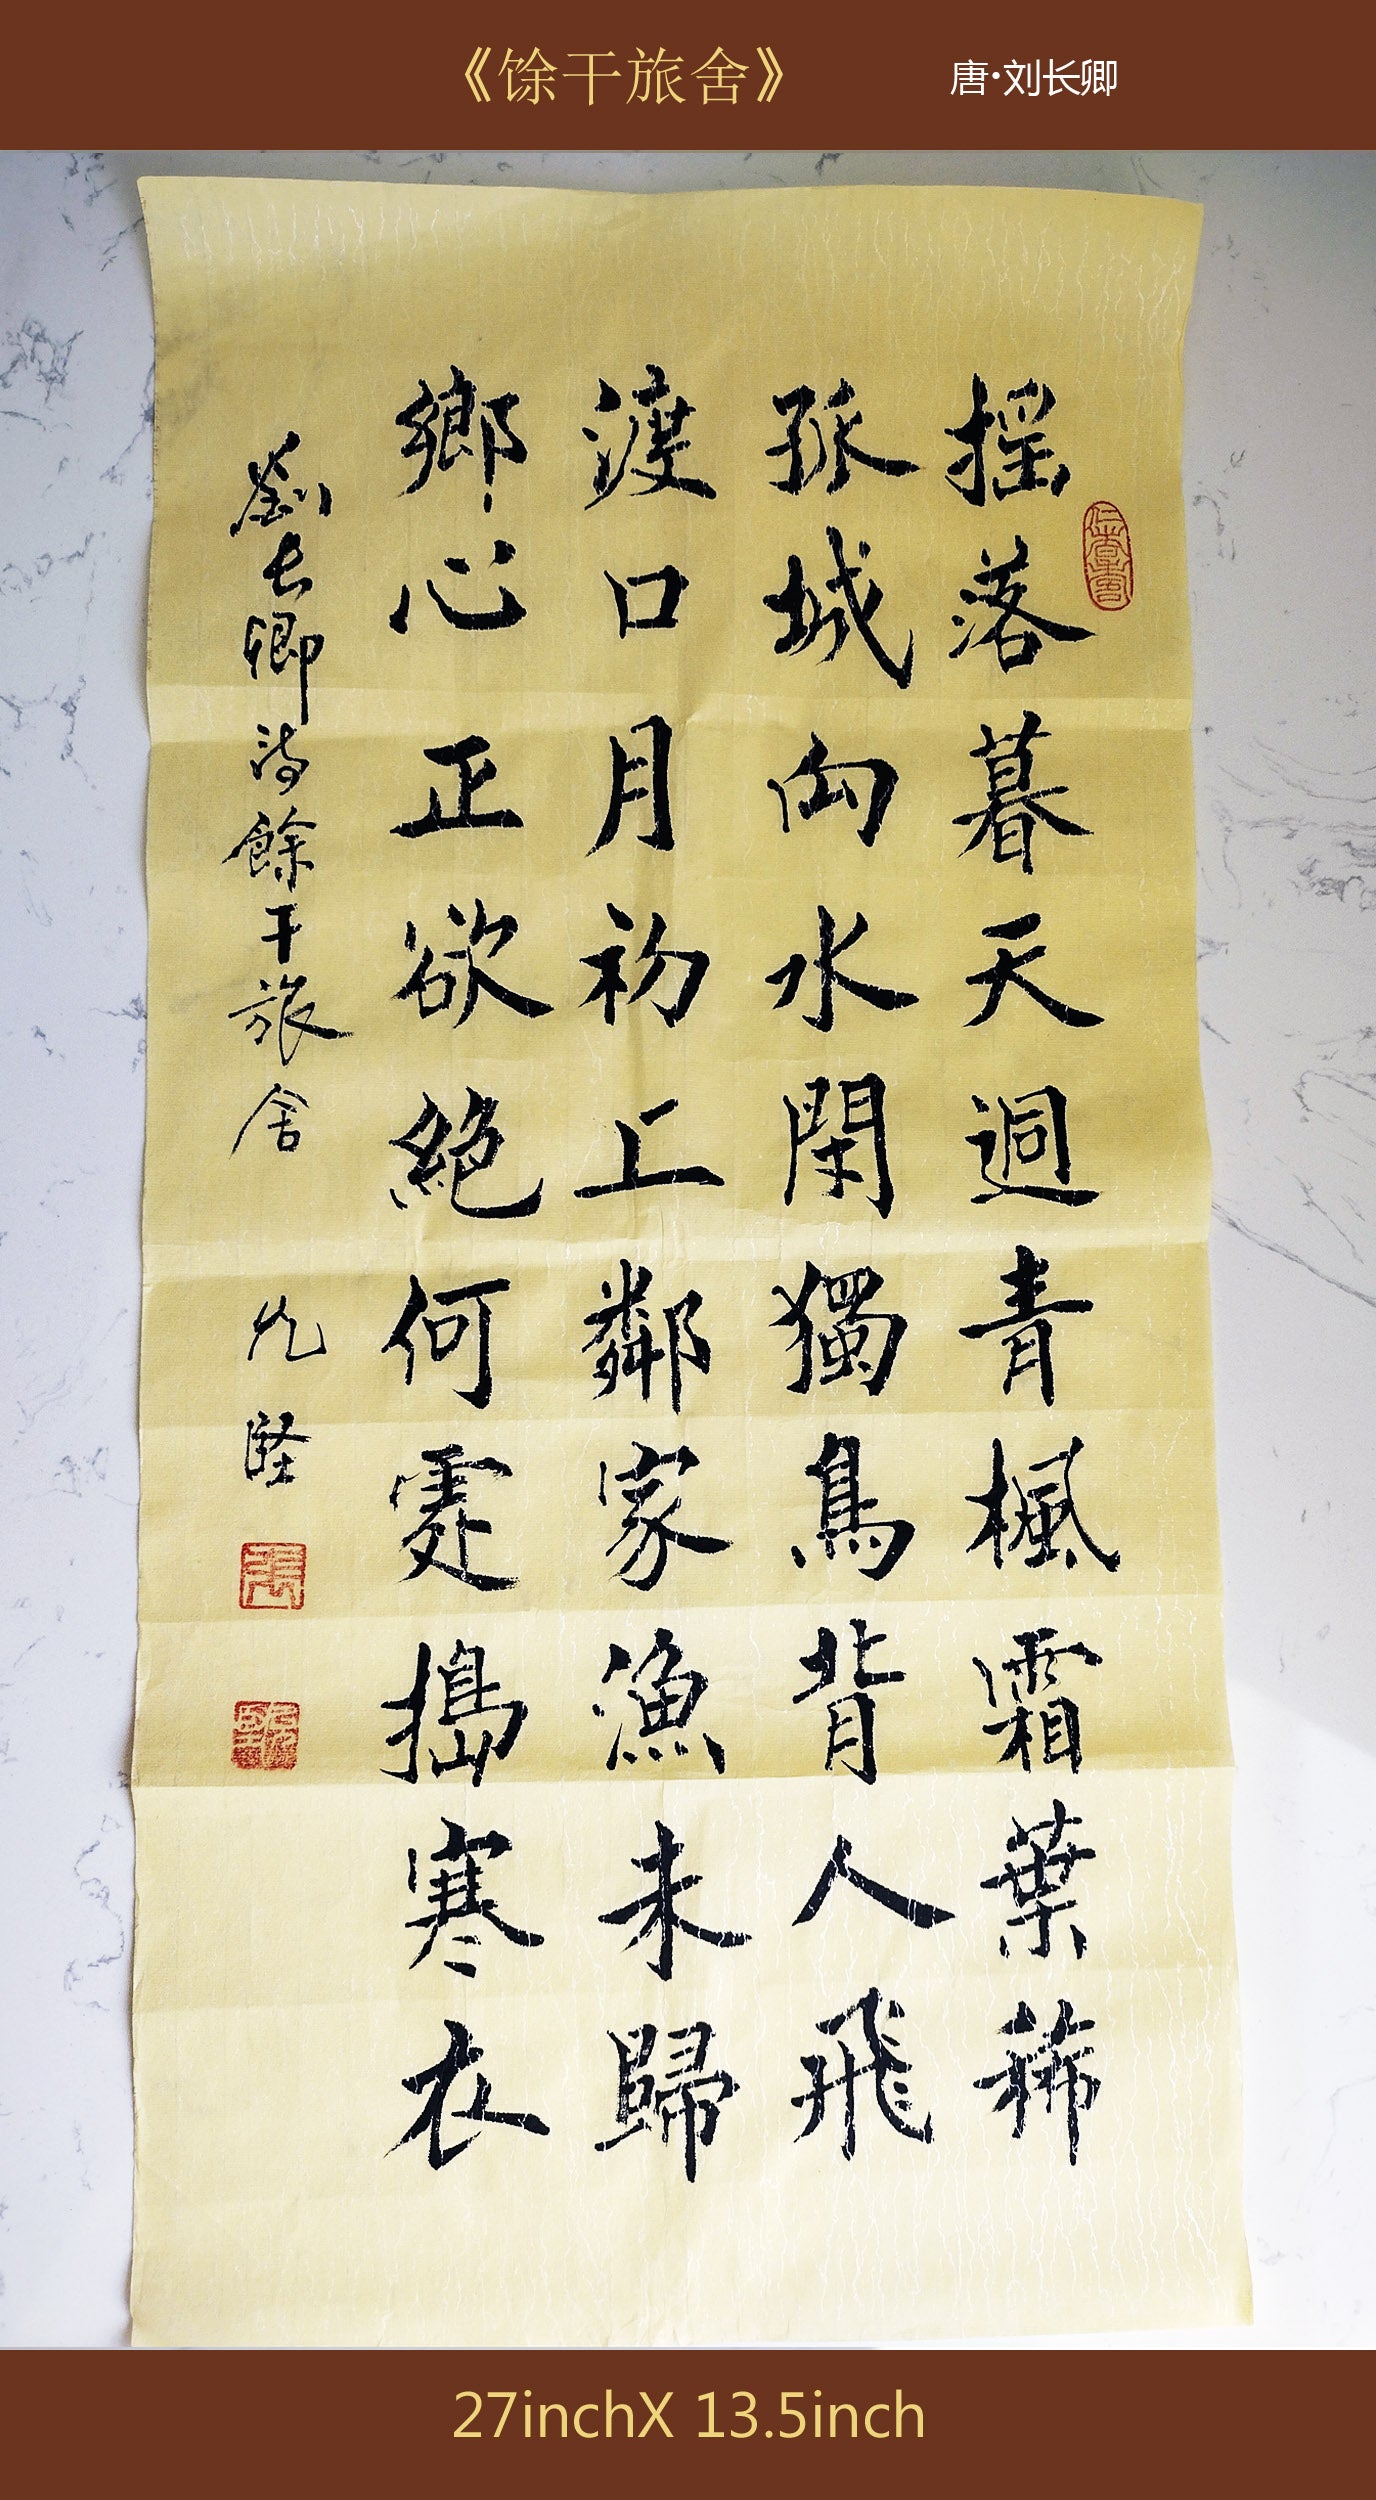 《馀干旅舍》 唐·刘长卿
摇落暮天迥青楓霜葉稀
孤城向水閑獨鳥背人飛
渡口月初上鄰家漁未歸
鄉心正欲絕何處搗寒衣
劉長卿詩餘干旅舍 九堅
張
27inchX 13.5inch